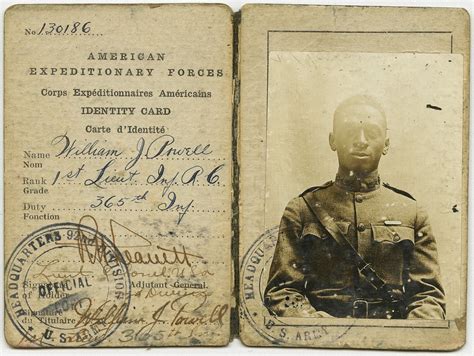 No. 130186
AMERICAN
EXPEDITIONARY FORCES
Corps Expéditionnaires Américains
IDENTITY CARD
Carte d'Identité
Name William J. Powell
Nom
Rank 1st Lieut Inf. R C.
Grade
Duty 365th Inf
Fonction
HEADQUARTERS 92nd DIVISION
OFFICIAL
U.S. ARMY
Adjutant General.
Signature
du Titulaire William J. Powell
365th
HEADQUARTERS
U.S. ARMY